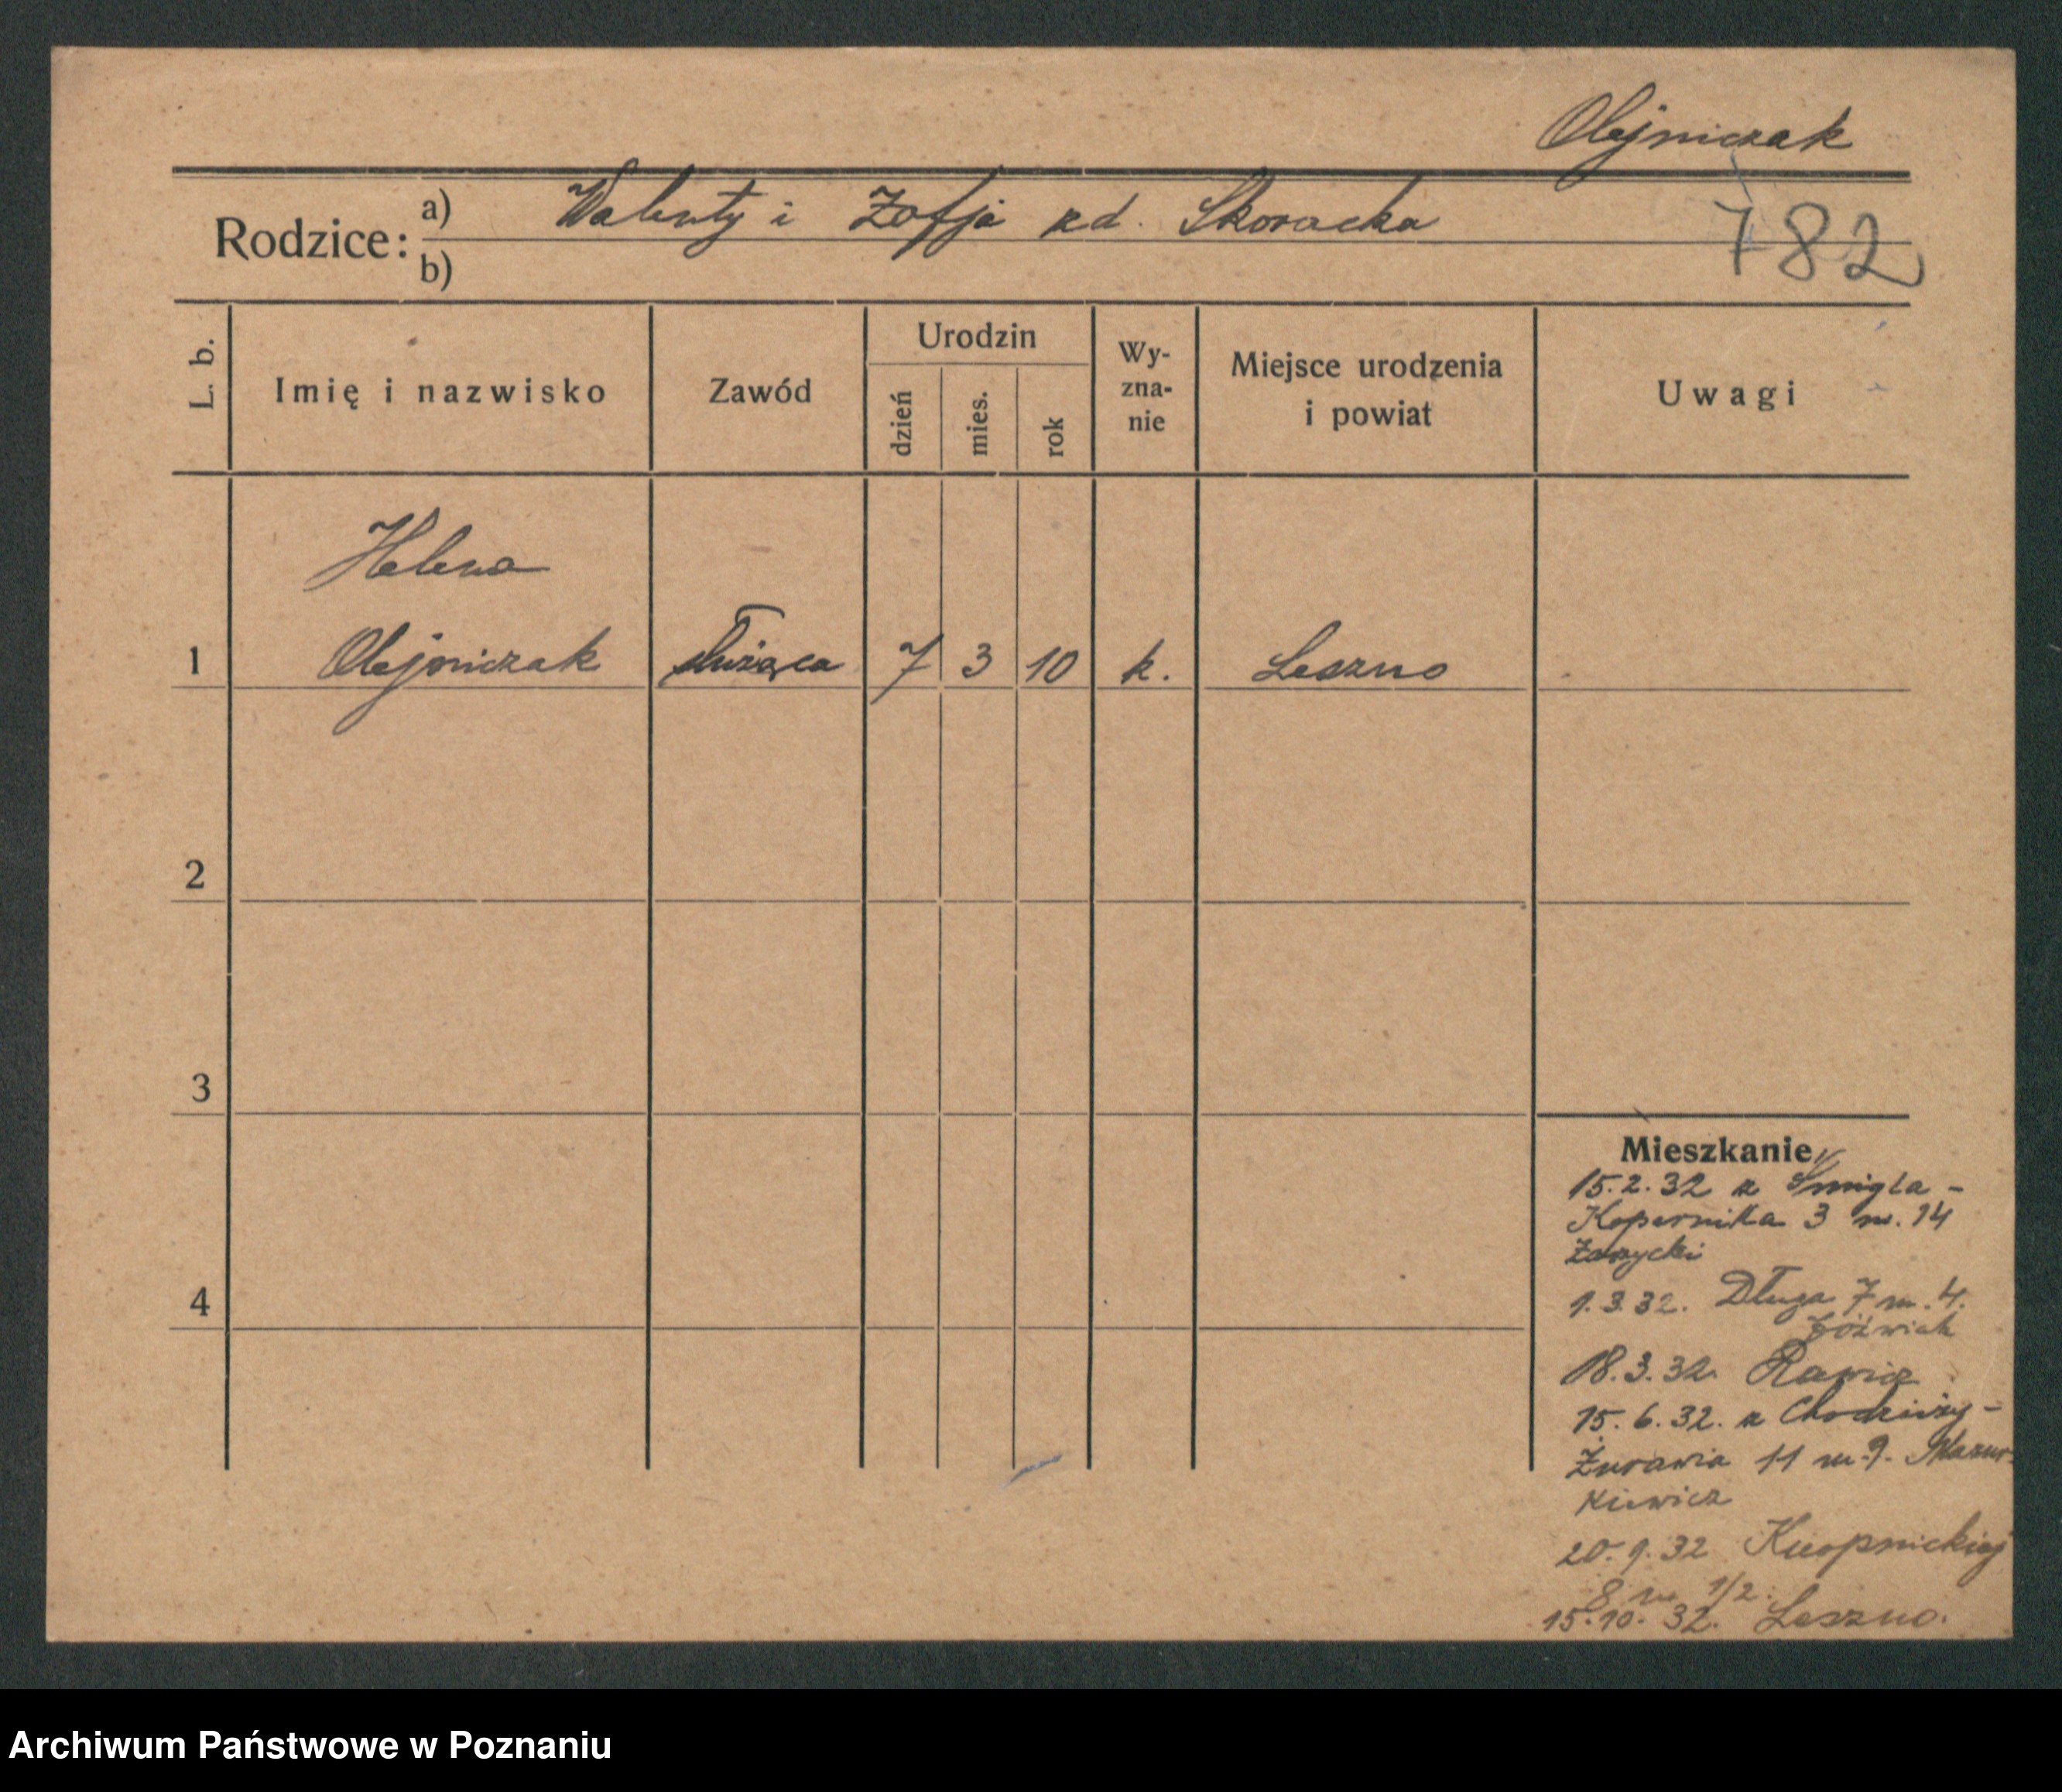 Olejniczak
Rodzice: a) Walenty i Zofja zd. Skoracka
782
b)
L. b. Imię i nazwisko Zawód Urodzin dzień mies. rok Wy-zna-nie Miejsce urodzenia i powiat Uwagi
Helena
1 Olejniczak służąca 7 3 10 k. Leszno
2
3
4
Mieszkanie
15.2.32 z Śmigla -
Kopernika 3 m. 14
1.3.32. Długa 7 m. 4.
Jóźwiak
18.3.32. Rawicz
15.6.32. z Chodzieży -
Żurawia 11 m. 9. Mazur-
kiewicz
20.9.32
8 m 1/2.
15.10.32. Leszno.
Archiwum Państwowe w Poznaniu